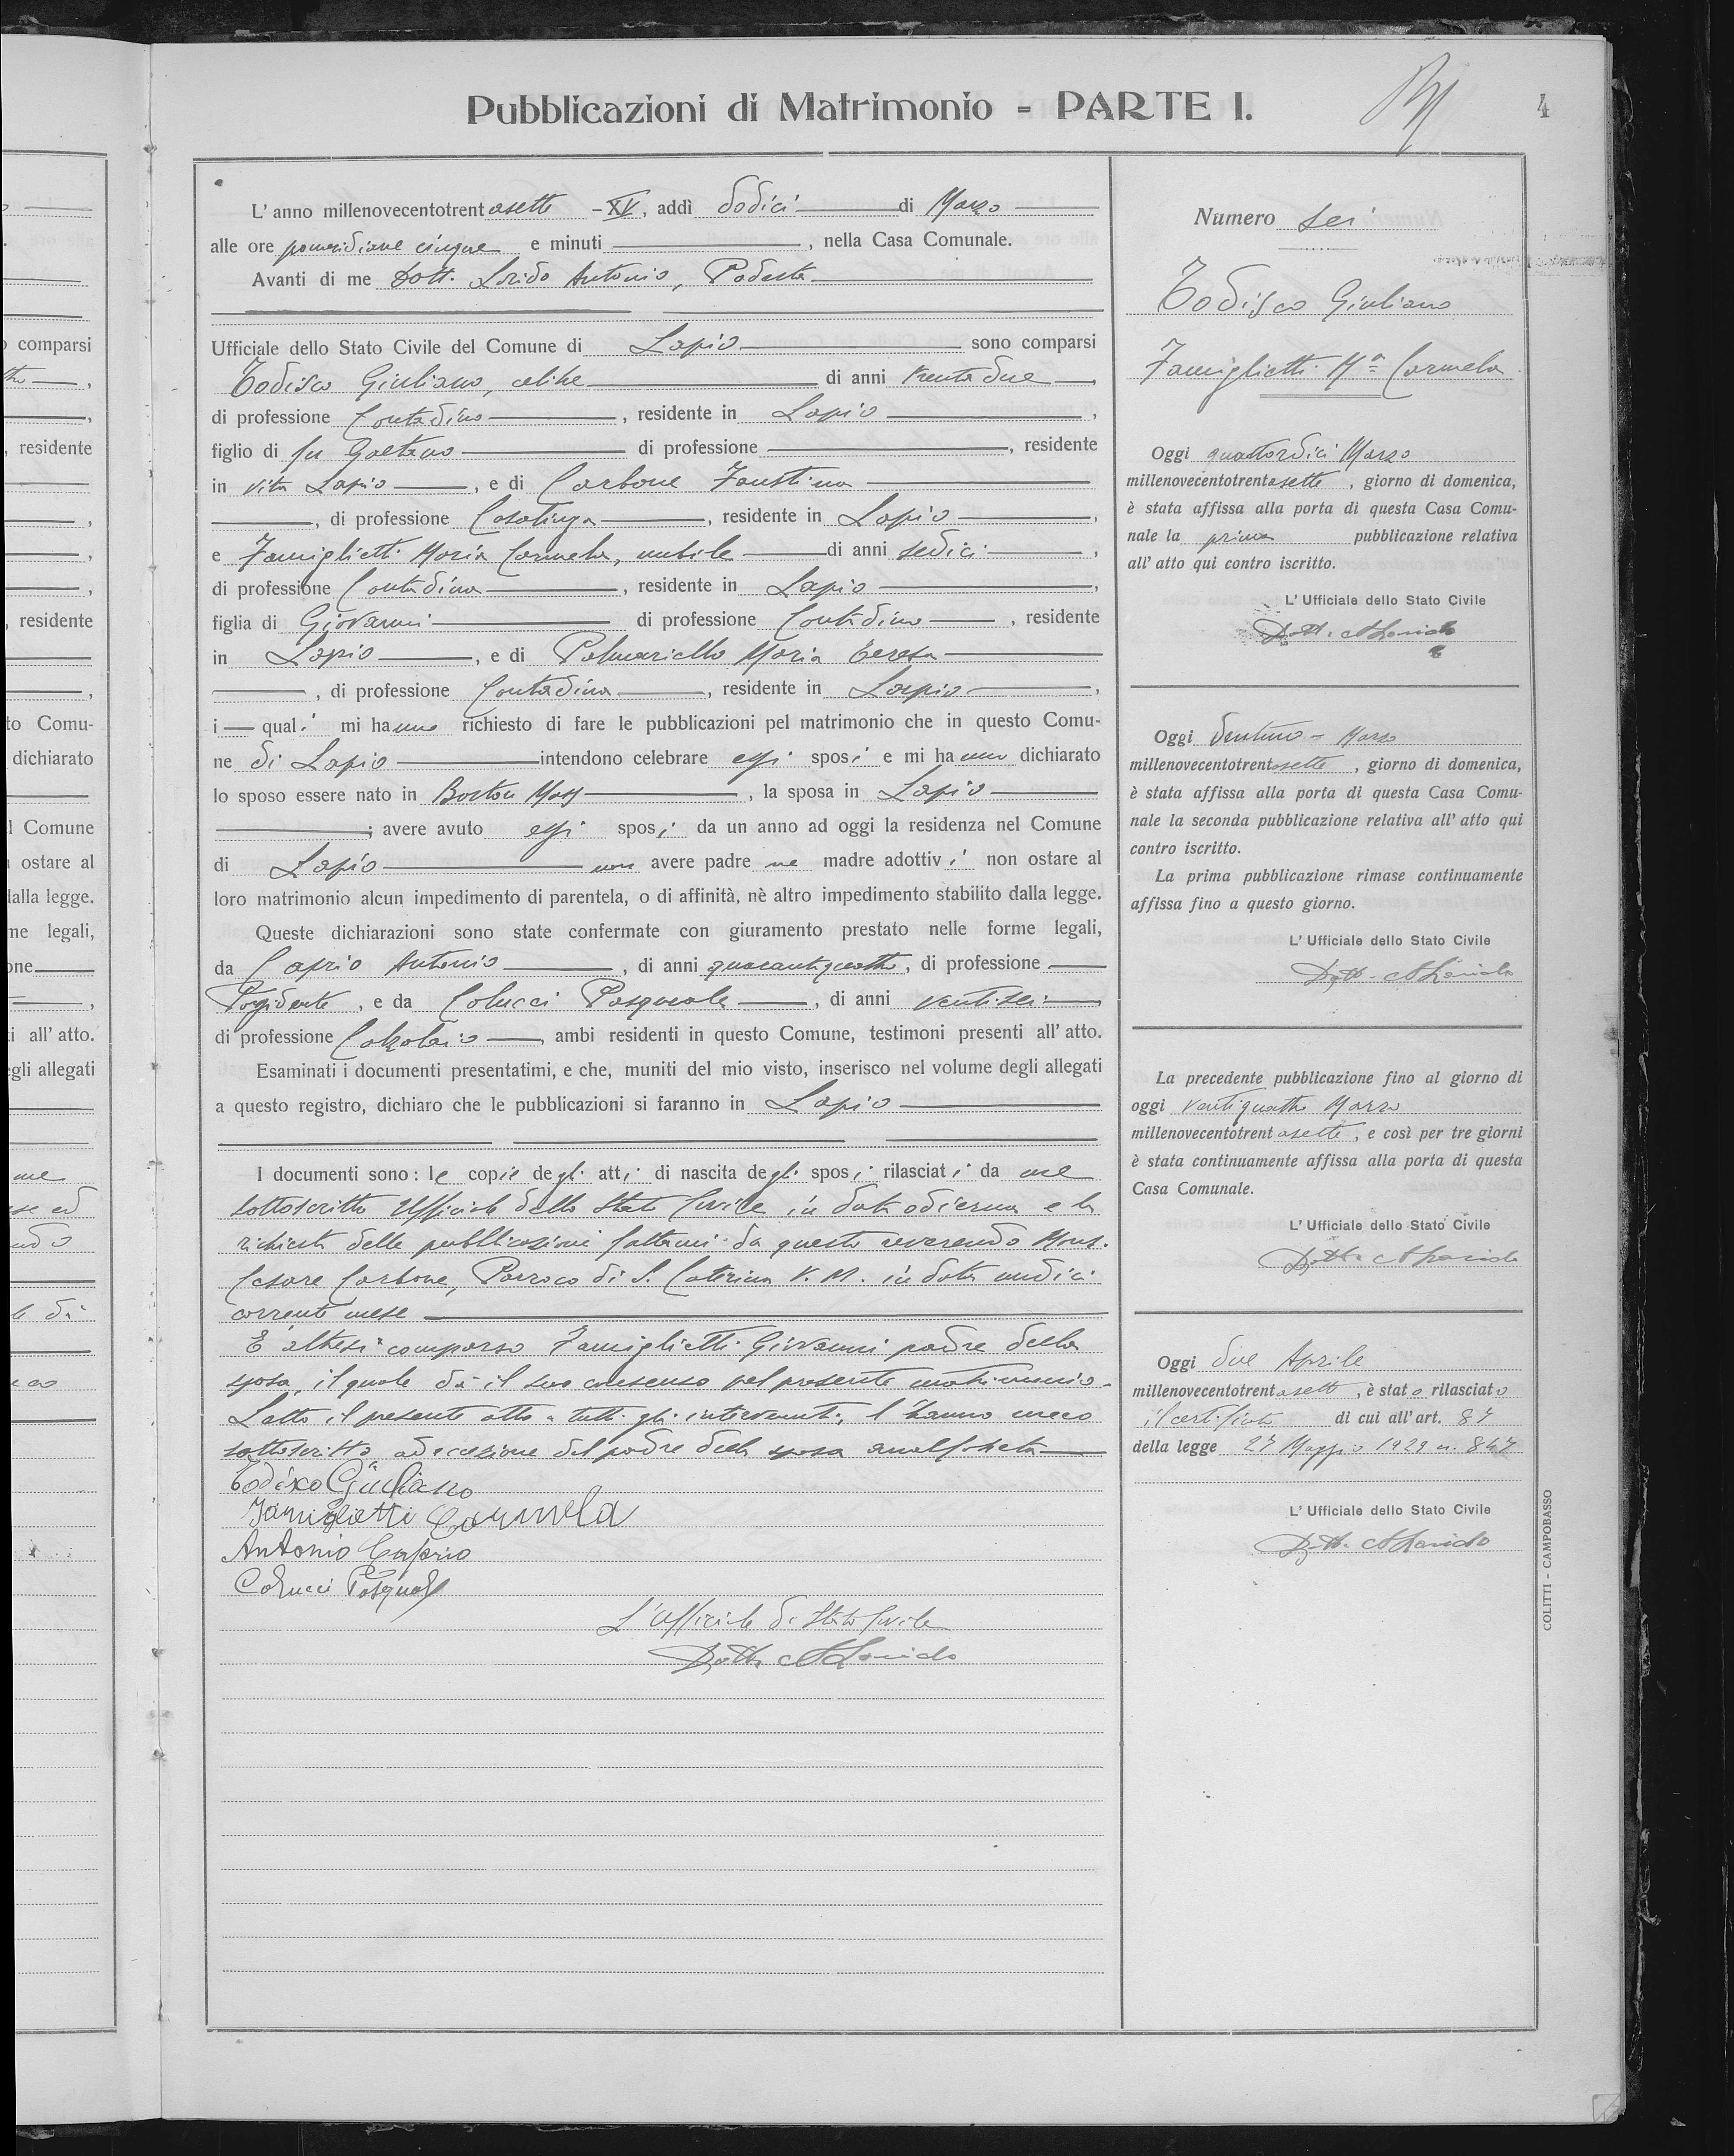 Pubblicazioni di Matrimonio - PARTE I.
4
L' anno millenovecentotrentasette - XV, addì dodici di Marzo
alle ore pomeridiane cinque e minuti , nella Casa Comunale.
Avanti di me Dott. Lorido Antonio, Podestà
Ufficiale dello Stato Civile del Comune di Lapio sono comparsi
Todisco Giuliano, celibe di anni trentadue ,
di professione Contadino , residente in Lapio ,
figlio di fu Gaetano di professione , residente
in vita Lapio , e di Carbone Faustina
, di professione Casalinga , residente in Lapio ,
e Famiglietti Maria Carmela, nubile di anni sedici ,
di professione Contadina , residente in Lapio ,
figlia di Giovanni di professione Contadino , residente
in Lapio , e di Palmariello Maria Teresa
, di professione Contadina , residente in Lapio ,
i quali mi hanno richiesto di fare le pubblicazioni pel matrimonio che in questo Comu-
ne di Lapio intendono celebrare essi sposi e mi hanno dichiarato
lo sposo essere nato in Boston Mass , la sposa in Lapio
; avere avuto essi sposi da un anno ad oggi la residenza nel Comune
di Lapio non avere padre ne madre adottivi non ostare al
loro matrimonio alcun impedimento di parentela, o di affinità, nè altro impedimento stabilito dalla legge.
Queste dichiarazioni sono state confermate con giuramento prestato nelle forme legali,
da Caprio Antonio , di anni quarantaquattro, di professione
Possidente , e da Colucci Pasquale , di anni ventisei
di professione Calzolaio ambi residenti in questo Comune, testimoni presenti all' atto.
Esaminati i documenti presentatimi, e che, muniti del mio visto, inserisco nel volume degli allegati
a questo registro, dichiaro che le pubblicazioni si faranno in Lapio
I documenti sono: le copie degli atti di nascita degli sposi rilasciati da me
sottoscritto Ufficiale dello Stato Civile in data odierna e la
richiesta delle pubblicazioni fattami da questo reverendo Mons.
Cesare Carbone, Parroco di S. Caterina V. M. in data undici
corrente mese
È altresì comparso Famiglietti Giovanni padre della
sposa, il quale dà il suo consenso pel presente matrimonio.
Letto il presente atto a tutti gli intervenuti, l'hanno meco
sottoscritto ad eccezione del padre della sposa analfabeta
Todisco Giuliano
Famiglietti Carmela
Antonio Caprio
Colucci Pasquale
L'Ufficiale di Stato Civile
Dott. A Lorido
Numero sei
Todisco Giuliano
Famiglietti Ma Carmela
Oggi quattordici Marzo
millenovecentotrentasette , giorno di domenica,
è stata affissa alla porta di questa Casa Comu-
nale la prima pubblicazione relativa
all' atto qui contro iscritto.
L' Ufficiale dello Stato Civile
Dott. A Lorido
Oggi ventuno - Marzo
millenovecentotrentasette , giorno di domenica,
è stata affissa alla porta di questa Casa Comu-
nale la seconda pubblicazione relativa all' atto qui
contro iscritto.
La prima pubblicazione rimase continuamente
affissa fino a questo giorno.
L' Ufficiale dello Stato Civile
Dott. A Lorido
La precedente pubblicazione fino al giorno di
oggi ventiquattro Marzo
millenovecentotrentasette , e così per tre giorni
è stata continuamente affissa alla porta di questa
Casa Comunale.
L' Ufficiale dello Stato Civile
Dott. A Lorido
Oggi due Aprile
millenovecentotrentasette , è stato rilasciato
il certificato di cui all' art. 87
della legge 27 Maggio 1929 n. 847
L' Ufficiale dello Stato Civile
Dott. A Lorido
COLITTI - CAMPOBASSO
comparsi
residente
residente
to Comu-
dichiarato
l Comune
ostare al
dalla legge.
me legali,
one
i all' atto.
egli allegati